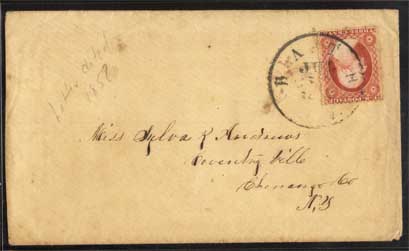 Letter dated
1858
BATH
JU
Miss Sylva R Andrews
Coventry Ville
Chenango Co
N.Y